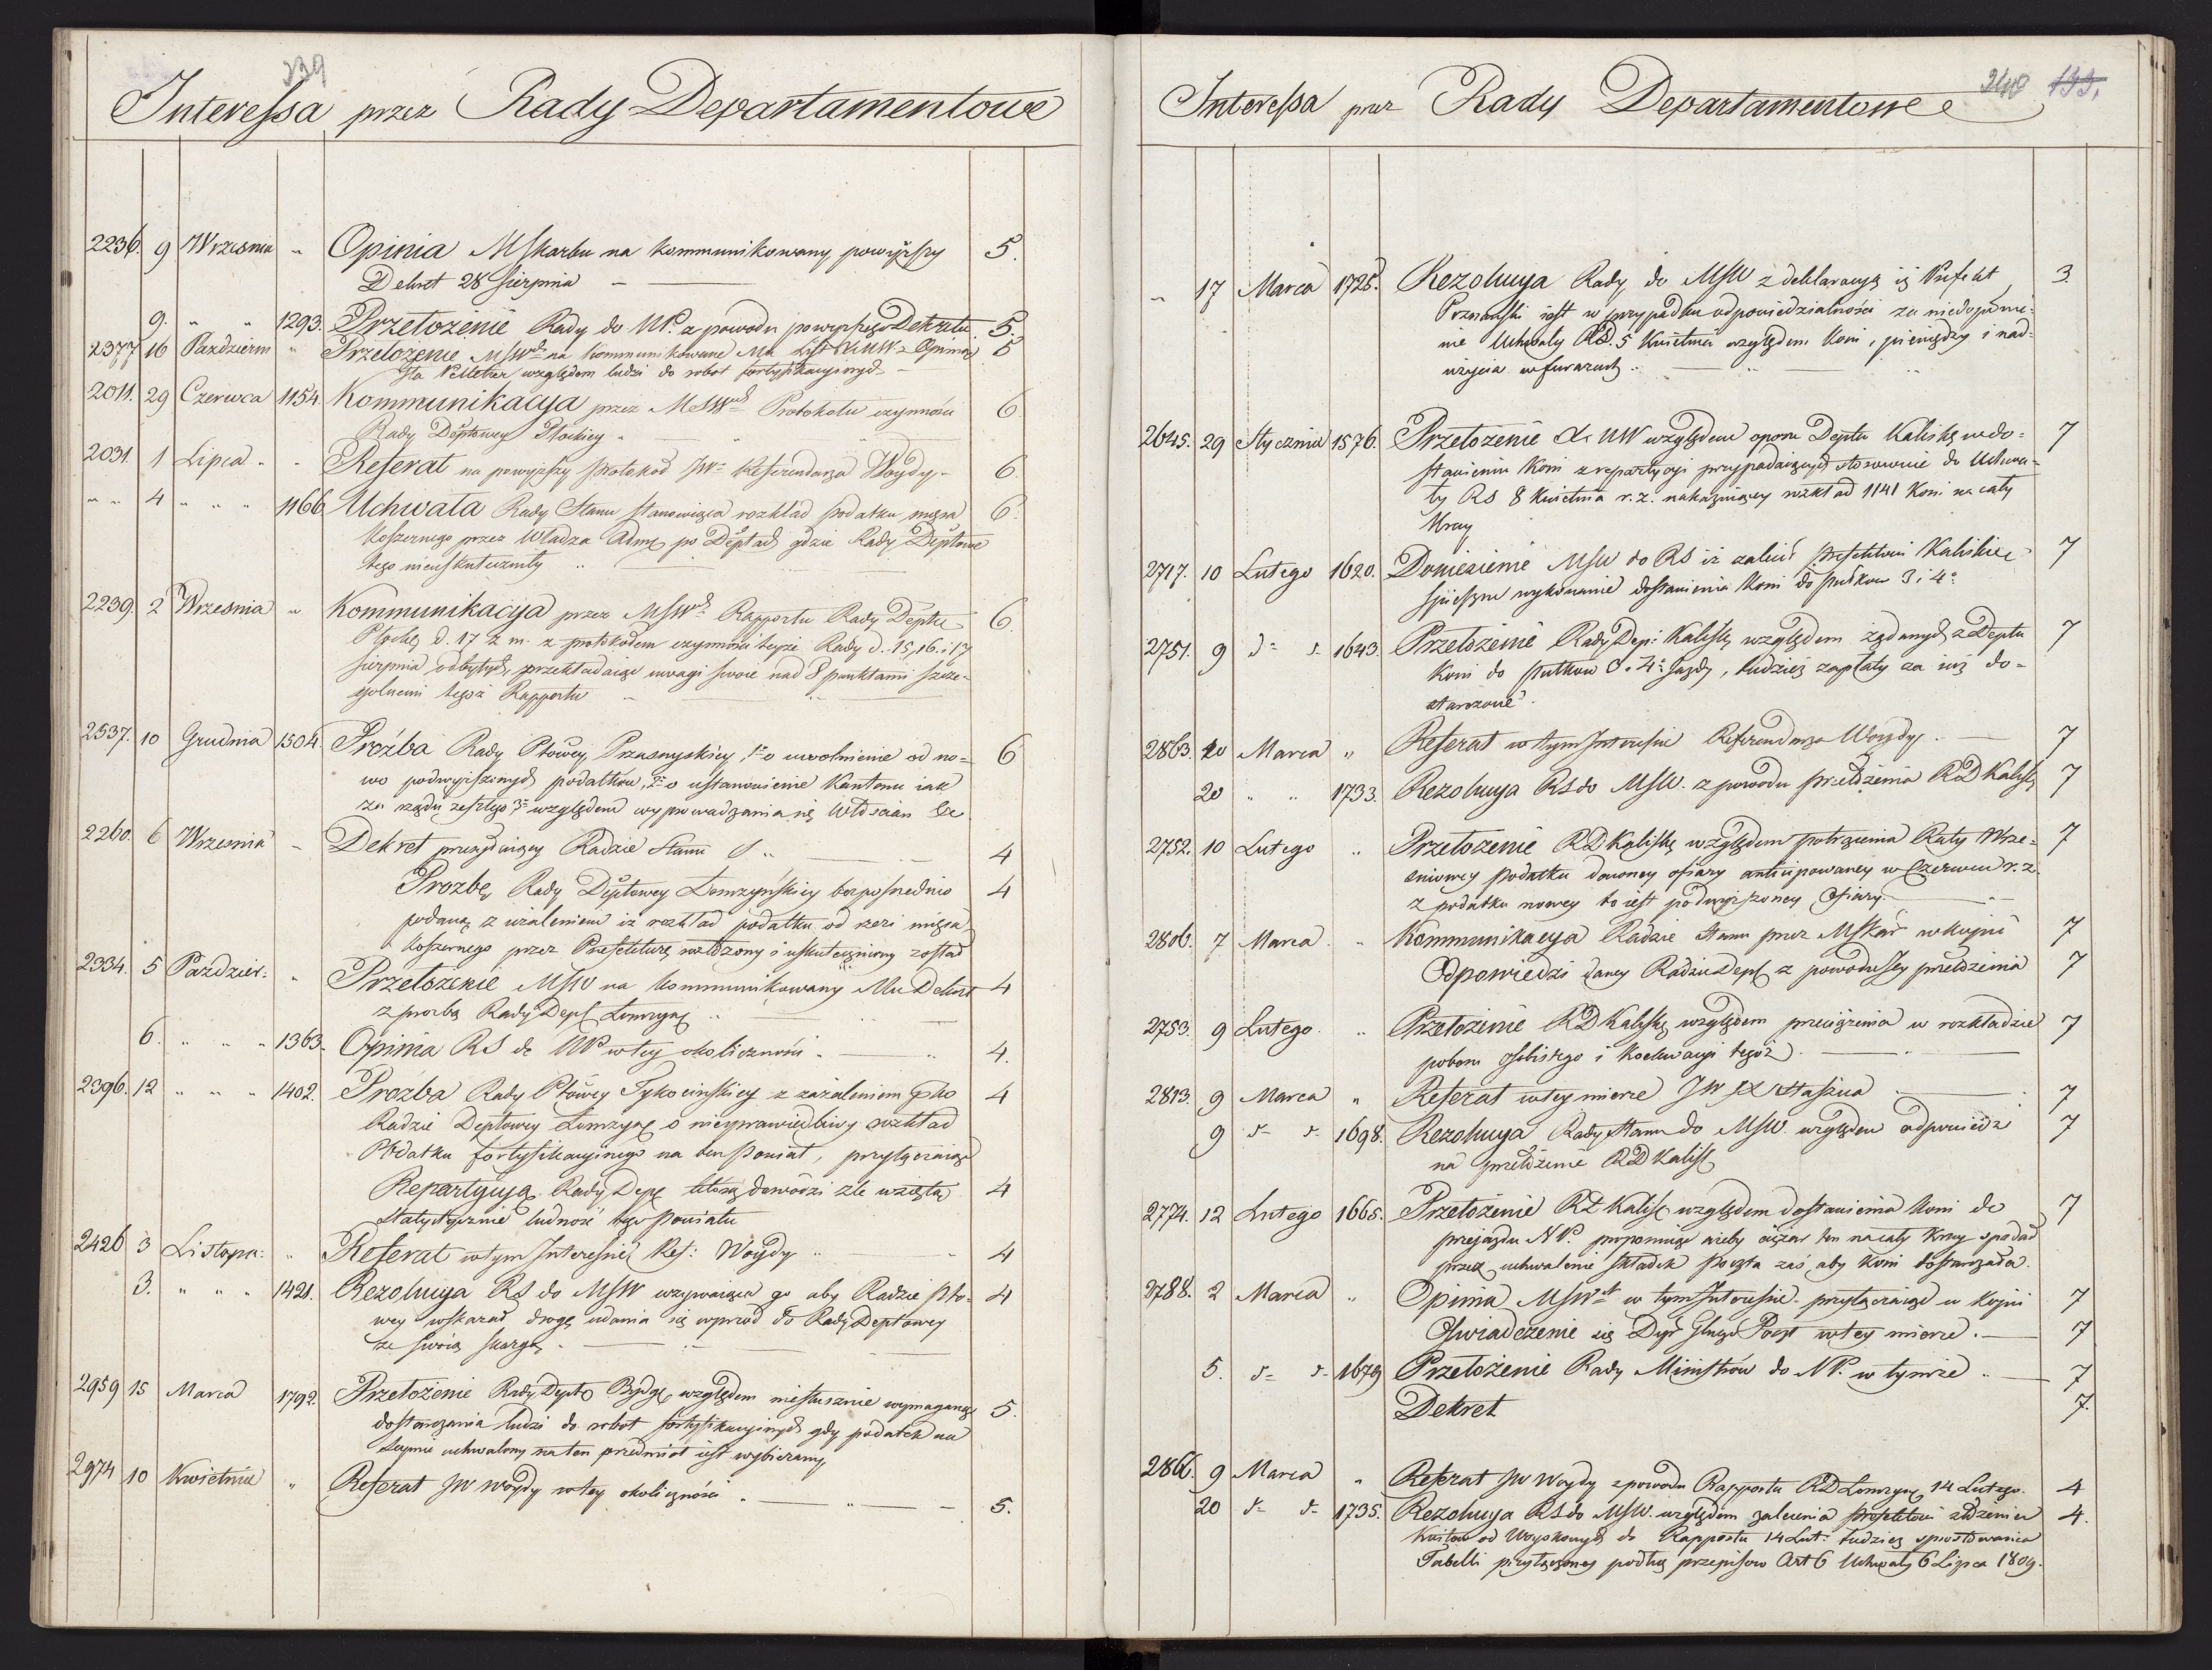 239
Interessa przez Rady Departamentowe
2236. 9 Wrzesnia " Opinia MSkarbu na kommunikowany powyższy 5.
Dekret 28 Sierpnia
9. " " 1293. Przełożenie Rady do NP. z powodu powyższego Dekretu 5.
2377 16 Pazdziern " Przełożenie MSW na kommunikowane Mu List Opinią 5
Pelletier względem ludzi do robot fortyfikacyinych
2011. 29 Czerwca 1154. Kommunikacya przez MSW Protokołu czynności 6.
Rady Deptowey Płockiey
2031. 1 Lipca " " Referat na powyższy protokoł JW Referendarza Woydy 6.
" " 4 " " 1166 Uchwała Rady Stanu stanowiąca rozkład podatku mięsa 6.
koszernego przez Władza Admę po Deptach gdzie Rady Deptowe
tego nieuskuteczniły
2239. 2 Wrzesnia " Kommunikacya przez MSW Rapportu Rady Deptu 6.
Płockę d. 17 z m. z protokołem czynności tejże Rady d. 15, 16. i 17
sierpnia odbytych, przekładaiąc uwagi swoie nad 8 punktami szcze-
golnemi tegoż Rapportu
2537. 10 Grudnia 1504. Proźba Rady Ptowey Przasnyskiey, 1o o uwolnienie od no= 6
wo podwyższonych podatkow, 2o o ustanowienie Kantonu iak
za rządu zeszłego 3o względem wyprowadzania się Włościan &c
2260. 6 Wrzesnia " Dekret przesyłaiący Radzie Stanu 4
Prozbę Rady Deptowey Łomżyńskiey bezpośrednio 4
podaną z użaleniem iż rozkład podatku od rzezi mięsa
koszernego przez Prefekturę rozłożony i uskuteczniony został
2334. 5 Pazdzier: " Przełożenie MSW na kommunikowany Mu Dekret 4
z prozbą Rady Dep Łomżyn
6. " " " 1363. Opinia RS do NP w tey okoliczności 4.
2396. 12 " " " 1402. Prozba Rady Ptowey Tykocinskiey z zażaleniem pko 4
Radzie Deptowey Łomżyn o niesprawiedliwy rozkład
Podatku fortyfikacyinego na ten Powiat, przyłączaiąc
Repartycyą Rady Dep którą dowodzi źle wziętą 4
statystycznie ludność tego Powiatu
2426 3 Listopa: " Referat w tym Interesie Ref: Woydy 4
3. " " " 1421. Rezolucya RS do MSW wzywaiąca go aby Radzie Pto- 4
wey wskazał drogę udania się wprzod do Rady Deptowey
ze swoią skargą
2959 15 Marca 1792. Przełożenie Rady Depto Bydg względem niesłusznie wymaganego 5.
dostarczania ludzi do robot fortyfikacyinych gdy podatek na
Seymie uchwalony na ten przedmiot iest wybierany
2974 10 Kwietnia " Referat JW Woydy w tey okoliczności 5.
240 199.
Interessa przez Rady Departamentowe
" 17 Marca 1725. Rezolucya Rady do MSW z deklaracyą iż Prefekt 3.
Poznański iest w przypadku odpowiedzialności za niedopełnie-
nie Uchwały RS. 5 Kwietnia względem koni, pieniędzy i nad-
użycia w furażach
2645. 29 Stycznia 1576. Przełożenie do NW względem oporu Deptu Kalisk w do= 7
stawieniu koni z repartycyi przypadaiących stosownie do Uchwa-
ły RS 8 Kwietnia r. z. nakazuiącey rozkład 1141 koni na cały
Kray
2717. 10 Lutego 1620. Doniesienie MSW do RS iż zalecił Prefektowi Kaliskie 7
spieszne wykonanie dostawienia koni do pułkow 3 i 4o
2751. 9 d= d= 1643. Przełożenie Rady Dep: Kalisk względem żądanych z Deptu 7
koni do Pułkow 3. 4o Jazdy, tudzież zapłaty za iuż do-
starczone
2863. 20 Marca " Referat w tym Interesie Referendarza Woydy. 7
20 " " 1733. Rezolucya RS do MSW. z powodu przełożenia RD Kalisk 7
2752. 10 Lutego " Przełożenie RD Kalisk względem potrącenia Raty Wrze= 7
sniowey podatku ofiary anticipowaney w Czerwcu r. z.
z podatku nowey to iest podwyższoney Ofiary
2806. 7 Marca " Kommunikacya Radzie Stanu przez MSkar w kopii 7
Odpowiedzi daney Radzie Dep z powodu Jey przełożenia 7
2753. 9 Lutego " Przełożenie RD Kalisk względem przeciążenia w rozkładzie 7
poboru osobistego i koekwacyi tegoż
2813. 9 Marca " Referat w tey mierze JW X Staszica 7
9 d- d- 1698. Rezolucya Rady Stanu do MSW. względem odpowiedzi 7
na przełożenie RD Kalisk
2774. 12 Lutego 1665. Przełożenie RD Kalisk względem dostawienia koni do 7
przejazdu NP. proponuiąc ażeby ciężar ten na cały Kray spadał
przez uchwalenie składek Poczta zaś, aby koni dostarczała.
2788. 2 Marca " Opinia MSW w tym Interesie przyłączaiąc w kopii 7
Oswiadczenie się Dyr Poczt w tey mierze. 7
5. d= d- 1679 Przełożenie Rady Ministrów do NP. w tymże 7
Dekret 7.
2866. 9 Marca " Referat JW Woydy z powodu Rapportu RD Łomżyn 14 Lutego. 4
20 d- d- 1735. Rezolucya RS do MSW. względem zalecenia Prefektowi złożenia 4.
Kwitow od Woyskowych do Rapportu 14 Lut: tudzież sprostowania
Tabelli przyłączoney podług przepisow Art 6 Uchwały 6 Lipca 1809.